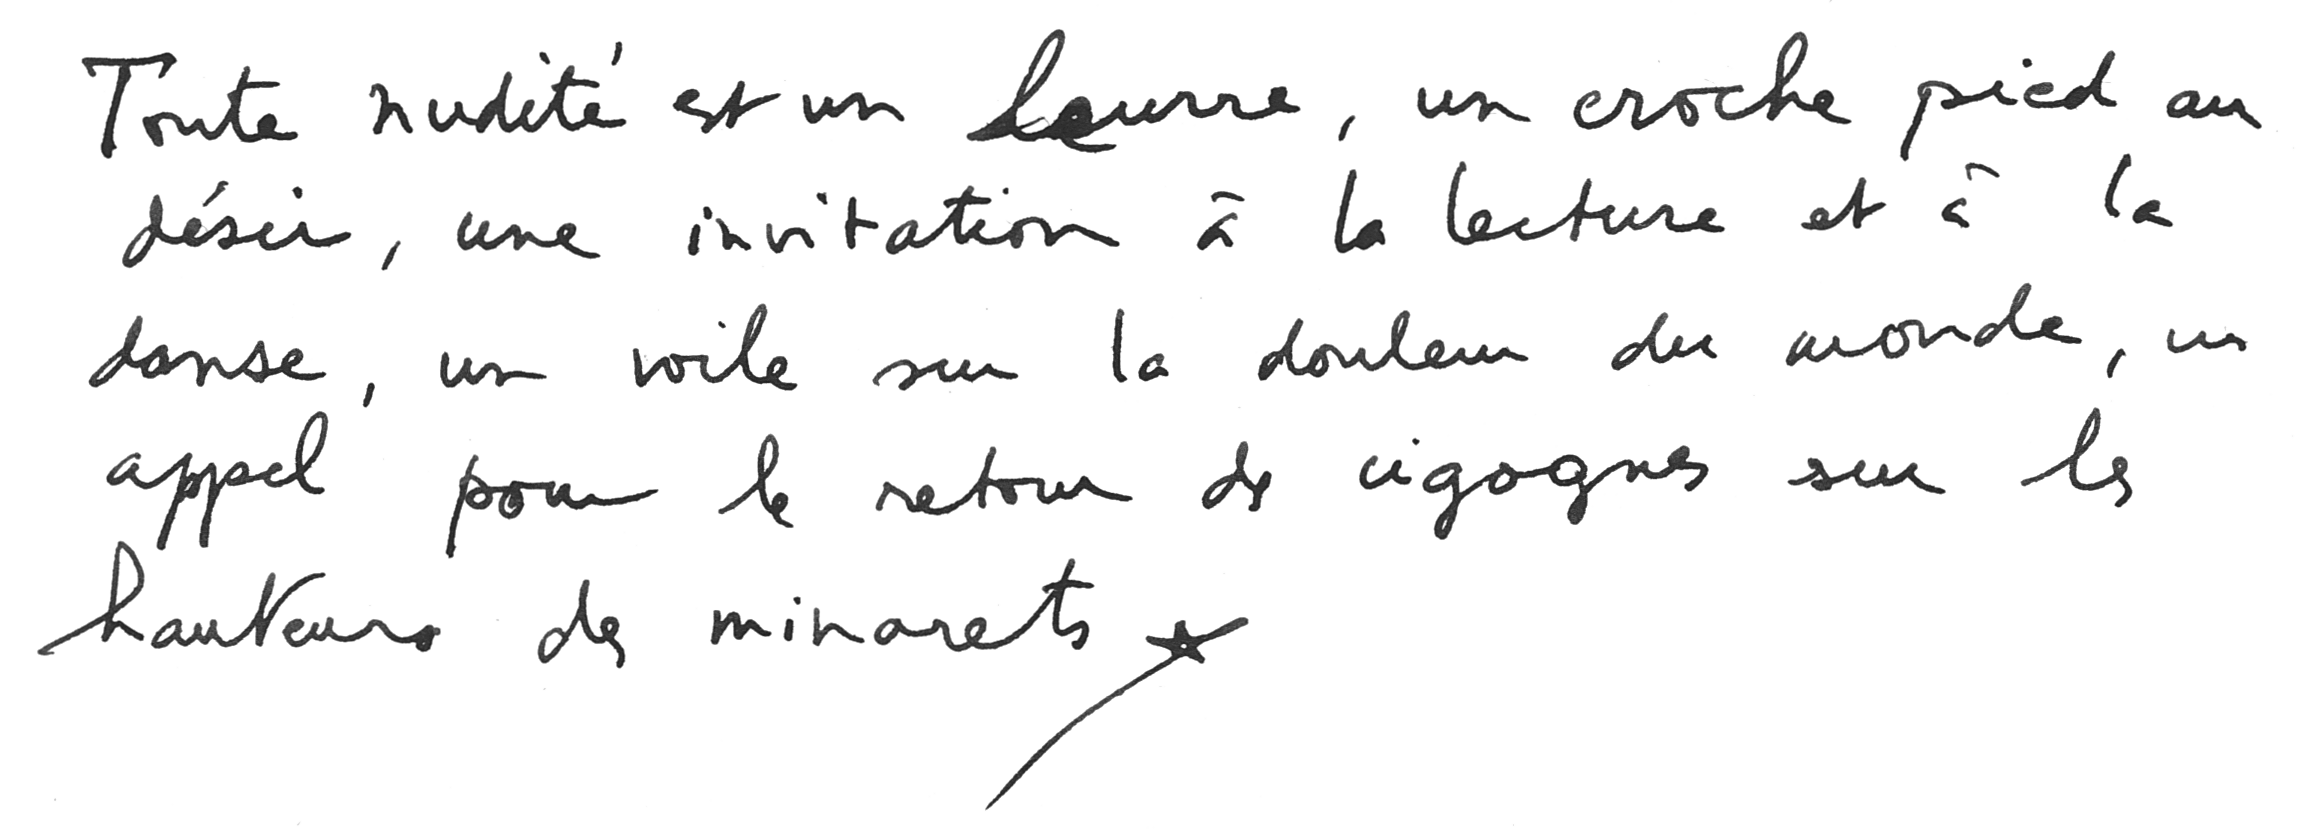 Toute nudité est un leurre, un croche pied au
désir, une invitation à la lecture et à la
danse, un voile sur la douleur du monde, un
appel pour le retour des cigognes sur les
hauteurs des minarets